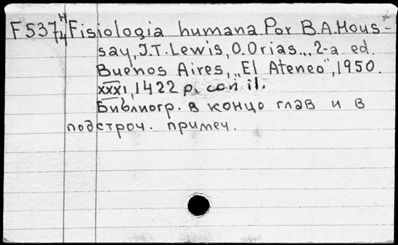 F537 4/4 Fisiologia humana. Por B.A.Hous-
say, J.T. Lewis, O. Orias... 2-a ed.
Buenos Aires, „El Ateneo", 1950.
XXXI, 1422 p. con il.
Библиогр. в концо глав и в
подстроч. примеч.